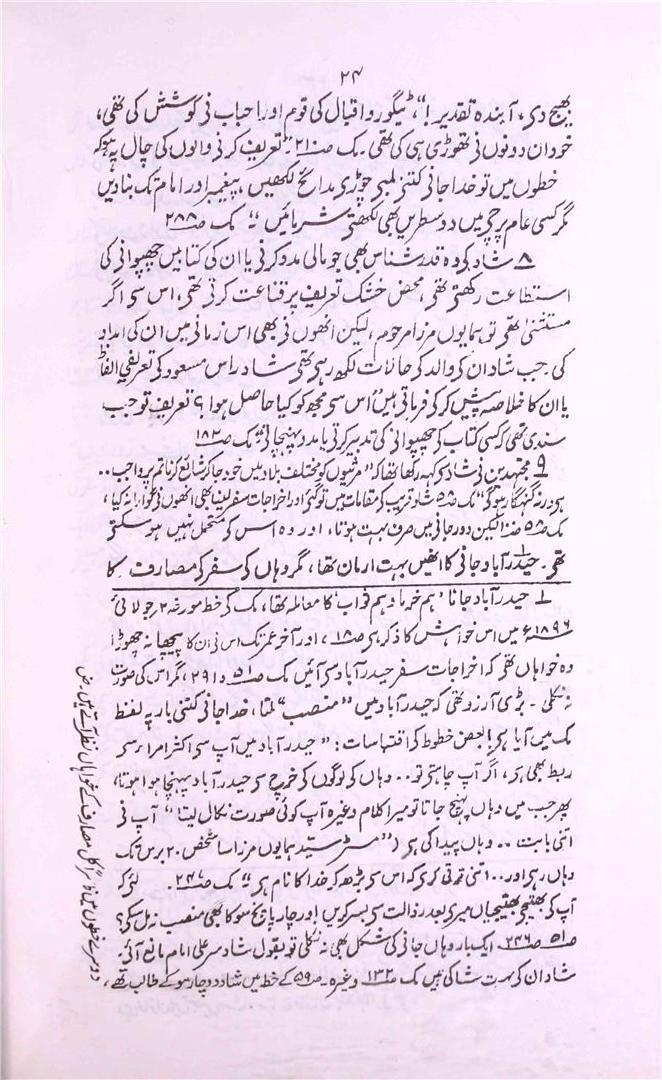 ۲۴
بھیج دی، آیندہ تقدیر!"، ٹیگور و اقبال کی قوم اور احباب نی کوشش کی تھی،
خود ان دونوں نی تھوڑی ہی کی تھی۔ مک صـ۲۱۰ "تعریف کرنی والوں کی چال یہ ہو کہ
خطوں میں تو خدا جانی کتنی لمبی چوڑی مدائح لکھیں، پیغمبر اور امام تک بنا دیں
مگر کسی عام پرچی میں دو سطریں بھی لکھتی شرمائیں" مک صـ۲۸۸
۸ شاد کی وہ قدر شناس بھی جو مالی مدد کرنی یا ان کی کتابیں چھپوانی کی
استطاعت رکھتی تھی، محض خشک تعریف پر قناعت کرتی تھی، اس سی اگر
مستثنیٰ تھی تو ہمایوں مرزا مرحوم، لیکن انھوں نی بھی اس زمانی میں ان کی امداد
کی جب شاد ان کی والد کی حالات لکھ رہی تھی شاد راس مسعود کی تعریفی الفاظ
یا ان کا خلاصہ پیش کر کی فرماتی ہیں "اس سی مجھ کو کیا حاصل ہوا؟ تعریف تو جب
سندی تھی کسی کتاب کی چھپوانی کی تدبیر کرتی یا مدد پہنچاتی" مک صـ۱۸۳
۹ مجتہدین نی شاد کو کہہ رکھا تھا کہ "مرثیوں کو مختلف بلاد میں خود جا کر شائع کرنا تم پر واجب..
ہی ورنہ گنہگار ہو گی" مک صـ۵۸ شاد قریب کی مقامات میں تو گئی اور اخراجات سفر لینا بھی انھوں نی گوارا نہ کیا،
مک صـ۵۸ لیکن دور جانی میں صرف بہت ہوتا، اور وہ اس کو متحمل نہیں ہو سکتی
تھی۔ حیدرآباد جانی کا انھیں بہت ارمان تھا، مگر وہاں کی سفر کی مصارف کا
۱ حیدرآباد جانا 'ہم خرما و ہم ثواب' کا معاملہ تھا، مک کی خط مورخہ ۲ جولائی
۱۸۹۶ء میں اس خواہش کا ذکر ہی صـ۱۸، اور آخر عمر تک اس نی ان کا پیچھا نہ چھوڑا
وہ خواہاں تھی کہ اخراجات سفر حیدرآباد سی آئیں مک صـ۵۱ و ۲۹۱، مگر اس کی صورت
نہ نکلی۔ بڑی آرزو تھی کہ حیدرآباد میں "منصب" ملتا، خدا جانی کتنی بار یہ لفظ
مک میں آیا ہی! بعض خطوط کی اقتباسات: "حیدرآباد میں آپ سی اکثر امراء سی
ربط بھی ہی، اگر آپ چاہتی تو.. وہاں کی لوگوں کی خرچ سی حیدرآباد پہنچا ہوا ہوتا،
پھر جب میں وہاں پہنچ جاتا تو میرا کلام وغیرہ آپ کوئی صورت نکال لیتا" "آپ نی
اتنی بابت .. وہاں پیدا کی ہی ("مسٹر سید ہمایوں مرزا سا شخص ۲۰ برس تک
وہاں رہی اور ... اتنی ترقی کری کہ اس سی بڑھ کر خدا کا نام ہی" مک صـ۲۴۷
آپ کی بھتیجی بھتیجیاں میری بعد رذالت سی بسر کریں اور چار پانچ سو کا بھی منصب نہ مل سکی؟
صـ۵۱ صـ۲۴۶ ایک بار وہاں جانی کی شکل بھی نکلی تو بقول شاد سر علی امام مانع آئی۔
شاد ان کی بہت شاکی ہیں مک صـ۱۳۲ وغیرہ۔ صـ۵۹ کے خط میں شاد دو چار سو کے طالب تھے،
دوسرے خطوں میں
کل مصارف کے خواہاں نظر آتے ہیں۔